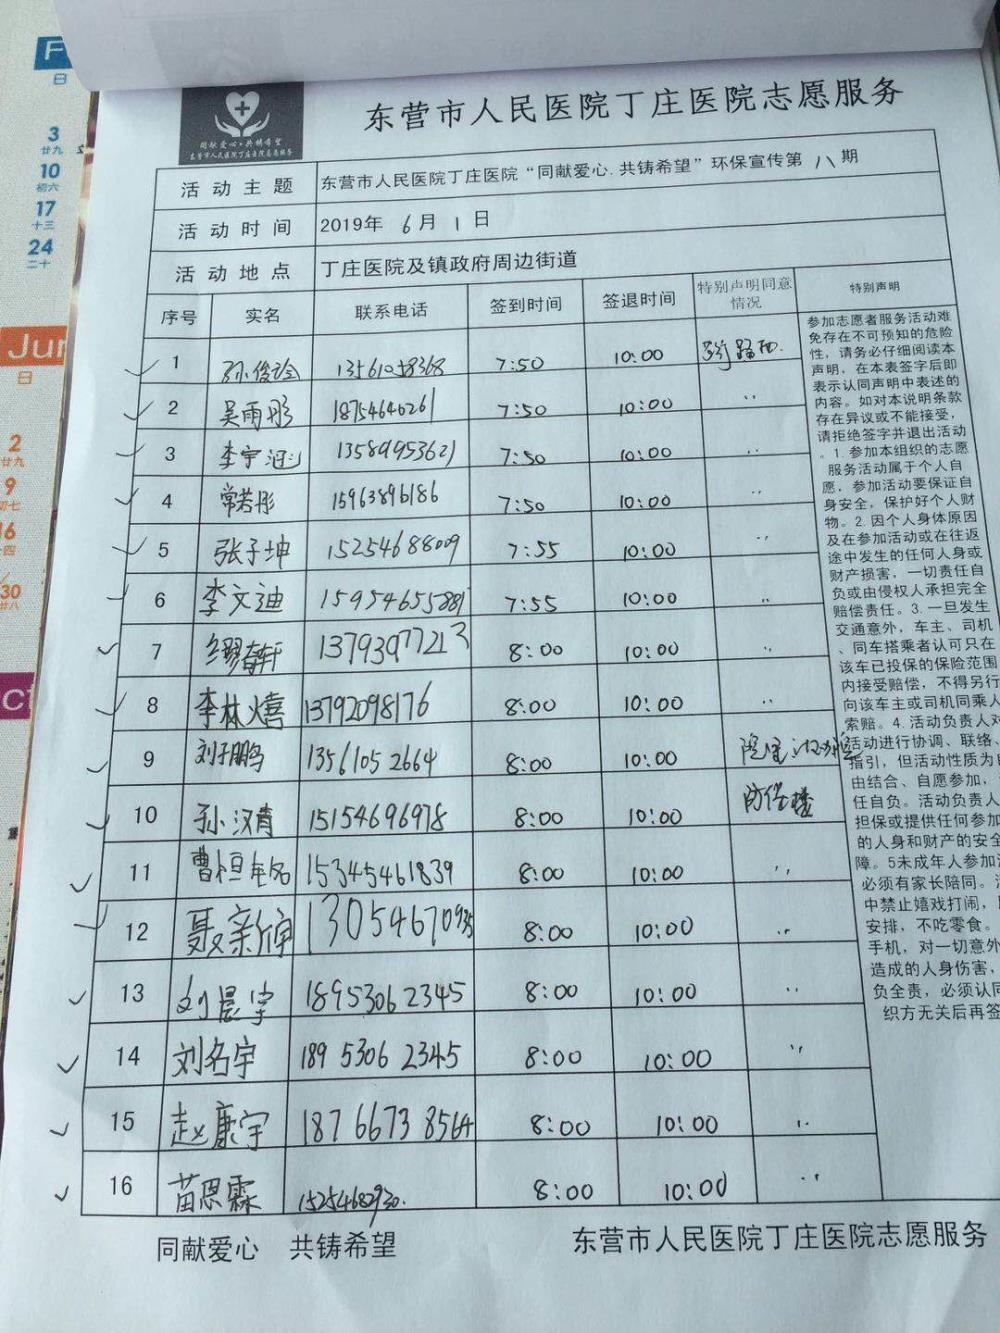 F
日
3
廿九
10
初六
17
十三
24
二十
Jun
日
2
廿九
9
16
30
廿八
同献爱心·共铸希望
东营市人民医院丁庄医院志愿服务
东营市人民医院丁庄医院志愿服务
活动主题 东营市人民医院丁庄医院“同献爱心.共铸希望”环保宣传第 八 期
活动时间 2019年 6 月 1 日
活动地点 丁庄医院及镇政府周边街道
序号 实名 联系电话 签到时间 签退时间 特别声明同意情况 特别声明
1 孙俊玲 13561058368 7:50 10:00
2 吴雨彤 18754640261 7:50 10:00 ..
3 李宇涵 13589953621 7:50 10:00 ..
4 常若彤 15963896186 7:50 10:00 ..
5 张子坤 15254688009 7:55 10:00 ..
6 李文迪 15954655881 7:55 10:00 ..
7 缪春轩 13793977213 8:00 10:00 ..
8 李林熹 13792098176 8:00 10:00 ..
9 刘子鹏 13561052664 8:00 10:00
10 孙汉青 15154696978 8:00 10:00
11 曹恒 15345461839 8:00 10:00 ..
12 聂新宇 13054670935 8:00 10:00 ..
13 刘晨宇 18953062345 8:00 10:00 ..
14 刘名宇 189 5306 2345 8:00 10:00 ..
15 赵康宇 187 6673 8564 8:00 10:00 ..
16 苗恩霖 15254682930. 8:00 10:00 ..
参加志愿者服务活动难
免存在不可预知的危险
性，请务必仔细阅读本
声明，在本表签字后即
表示认同声明中表述的
内容。如对本说明条款
存在异议或不能接受，
请拒绝签字并退出活动
。1.参加本组织的志愿
服务活动属于个人自
愿，参加活动要保证自
身安全，保护好个人财
物。2.因个人身体原因
及在参加活动或在往返
途中发生的任何人身或
财产损害，一切责任自
负或由侵权人承担完全
赔偿责任。3.一旦发生
交通意外，车主、司机
、同车搭乘者认可只在
该车已投保的保险范围
内接受赔偿，不得另行
向该车主或司机同乘人
索赔。4.活动负责人对
活动进行协调、联络、
指引，但活动性质为自
由结合、自愿参加，
任自负。活动负责人
担保或提供任何参加
的人身和财产的安全
障。5未成年人参加
必须有家长陪同。
中禁止嬉戏打闹，
安排，不吃零食。
手机，对一切意外
造成的人身伤害，
负全责，必须认同
织方无关后再签
同献爱心 共铸希望
东营市人民医院丁庄医院志愿服务